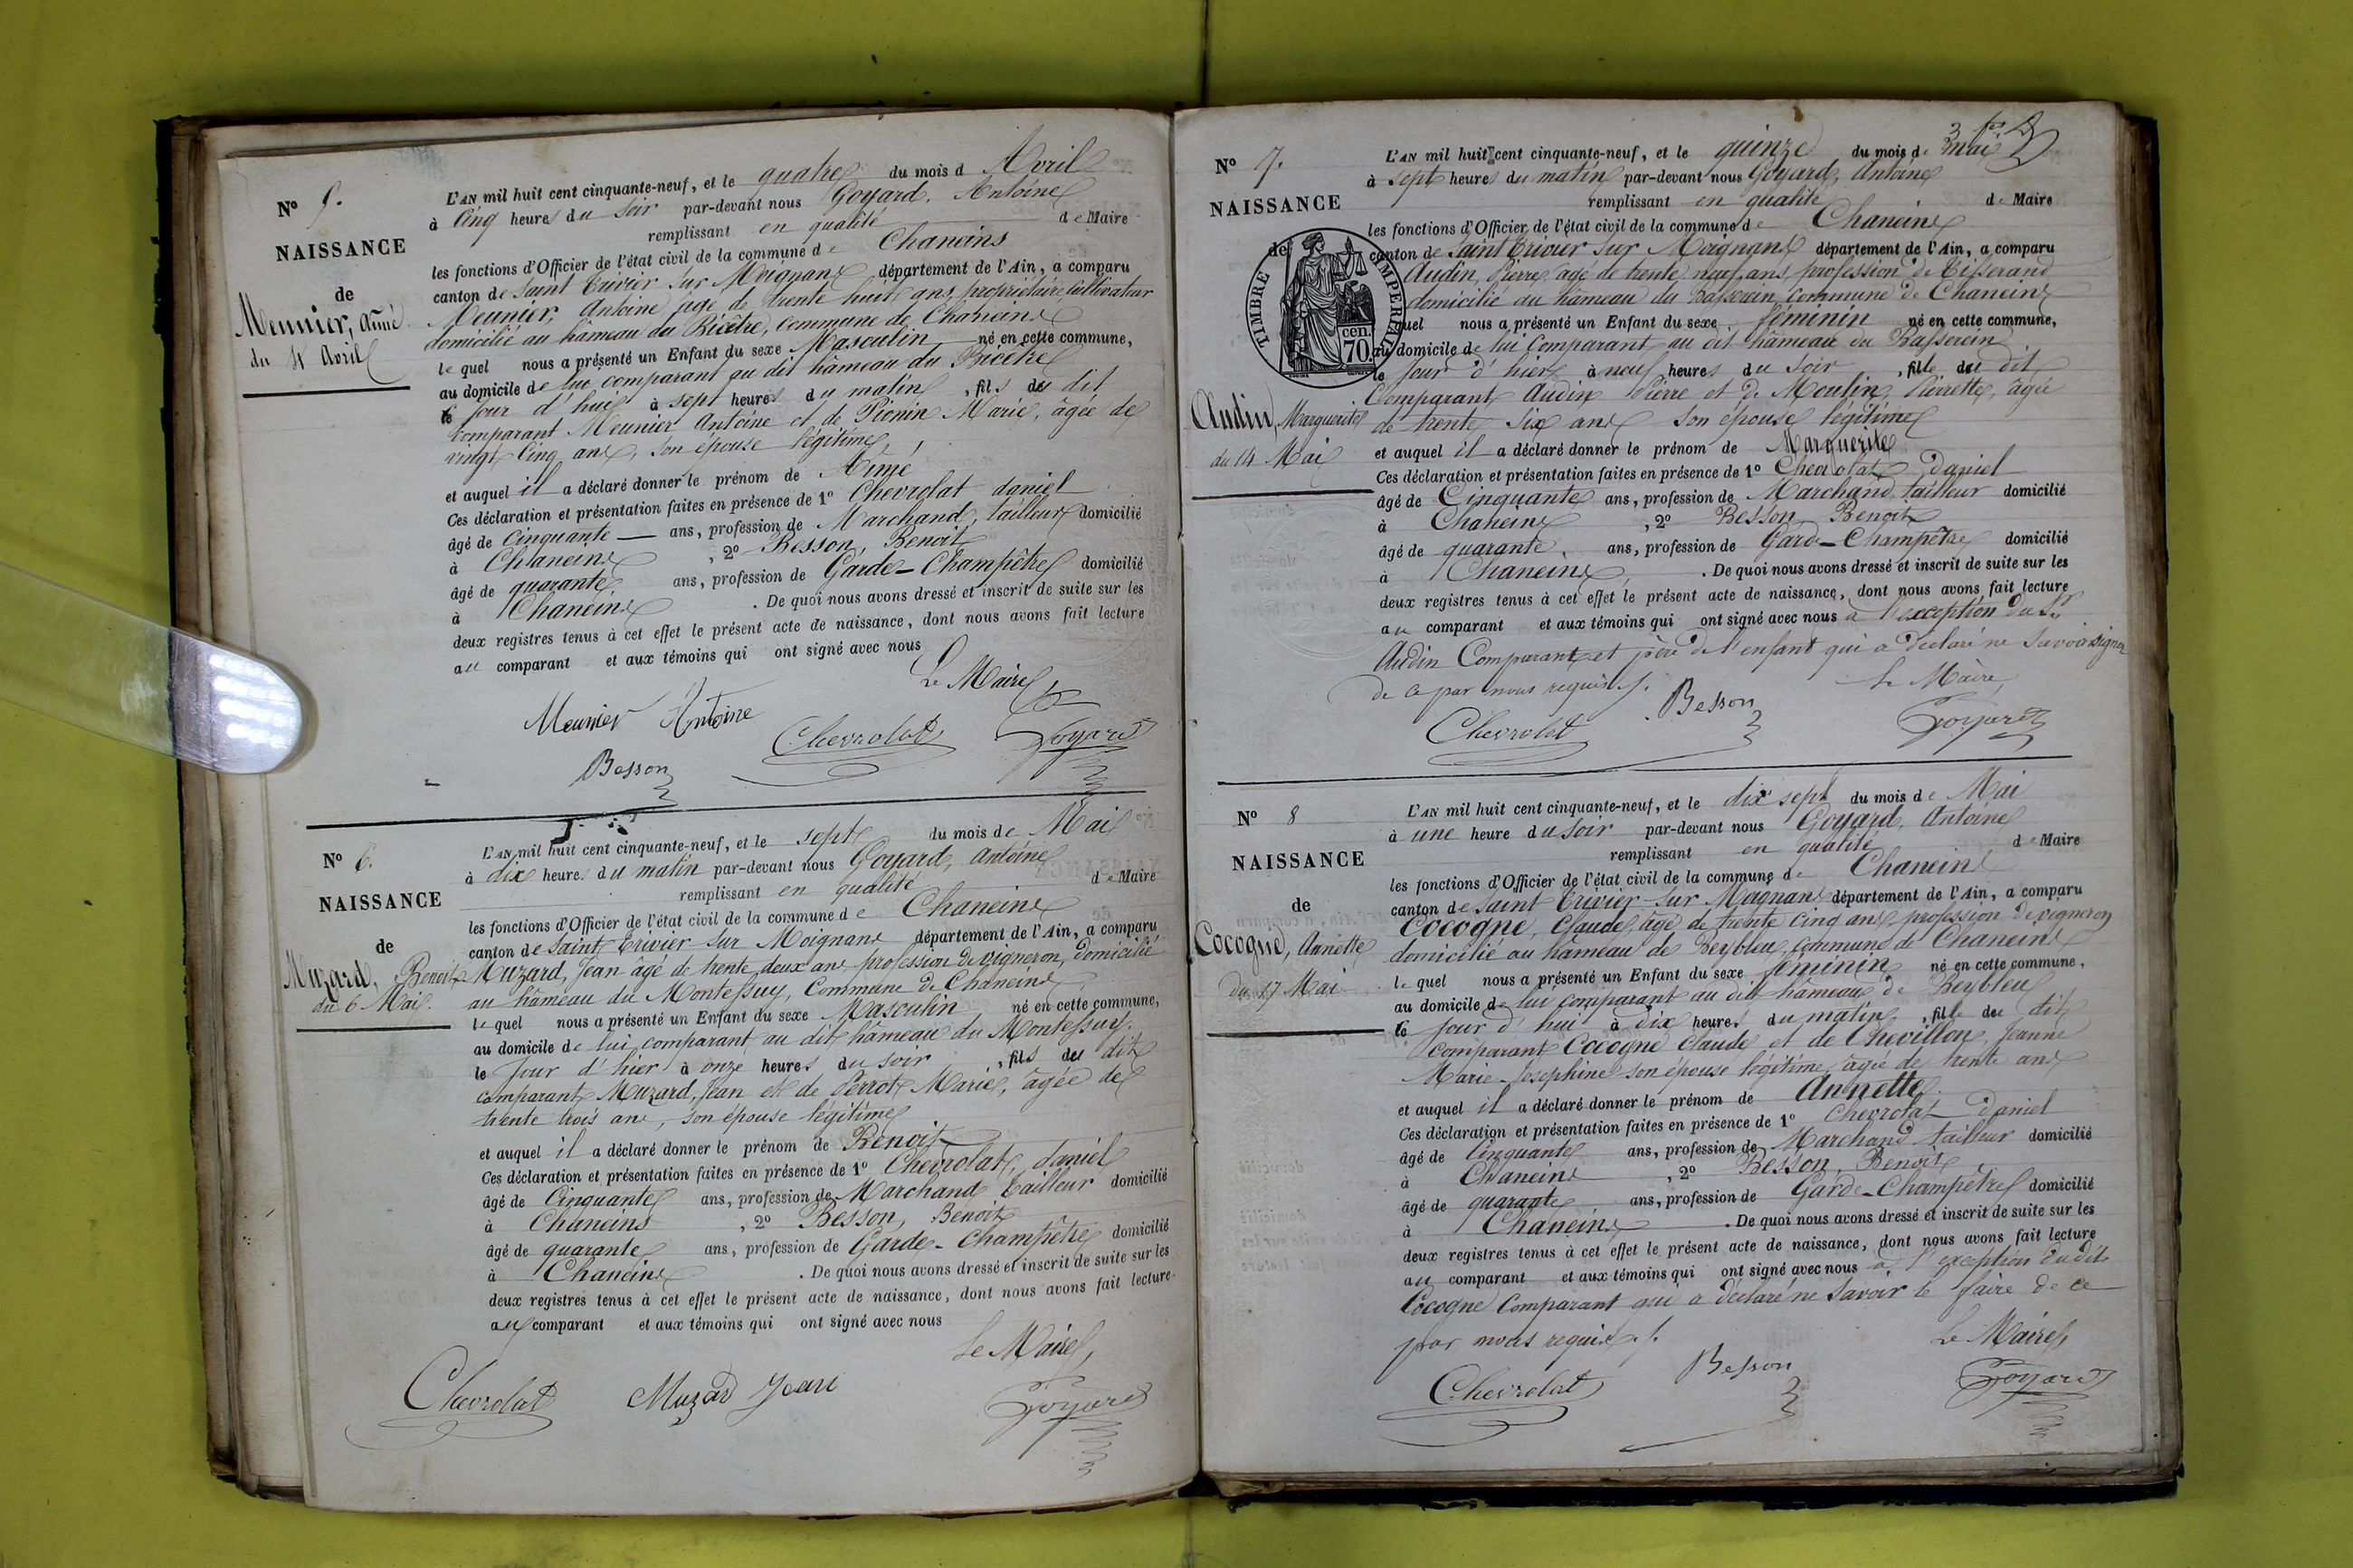 N° 5.
NAISSANCE
de
Meunier, Aimé
du 4 Avril
L'AN mil huit cent cinquante-neuf, et le quatre du mois d Avril
à Cinq heures du Soir par-devant nous Goyard, Antoine
remplissant en qualité de Maire
les fonctions d'Officier de l'état civil de la commune de Chaneins
canton de Saint Trivier Sur Moignans département de l'Ain, a comparu
Meunier, Antoine âgé de trente huit ans, propriétaire cultivateur
domicilié au hâmeau du Bicêtre, commune de Chaneins
le quel nous a présenté un Enfant du sexe Masculin né en cette commune,
au domicile de lui comparant au dit hâmeau du Bicêtre
le Jour d'hui à sept heures du matin, fils du dit
comparant Meunier Antoine et de Pionin Marie, âgée de
vingt Cinq ans, son épouse légitime,
et auquel il a déclaré donner le prénom de Aimé
Ces déclaration et présentation faites en présence de 1° Chevrolat daniel
âgé de Cinquante ans, profession de Marchand, tailleur domicilié
à Chaneins, 2° Besson, Benoit
âgé de quarante ans, profession de Garde-Champêtre domicilié
à Chaneins. De quoi nous avons dressé et inscrit de suite sur les
deux registres tenus à cet effet le présent acte de naissance, dont nous avons fait lecture
au comparant et aux témoins qui ont signé avec nous
Le Maire
Meunier Antoine
Chevrolat
Goyard
Besson
N° 6.
NAISSANCE
de
Muzard, Benoit
du 6 Mai.
L'AN mil huit cent cinquante-neuf, et le sept du mois de Mai
à dix heures du matin par-devant nous Goyard, Antoine
remplissant en qualité de Maire
les fonctions d'Officier de l'état civil de la commune de Chaneins
canton de Saint Trivier Sur Moignans département de l'Ain, a comparu
Muzard, Jean âgé de trente deux ans profession de vigneron, domicilié
au hâmeau du Montessuy, Commune de Chaneins,
le quel nous a présenté un Enfant du sexe Masculin né en cette commune,
au domicile de lui comparant au dit hâmeau du Montessuy.
le Jour d'hier à onze heures du soir, fils du dit
comparant Muzard, Jean et de Perrot Marie, âgée de
trente trois ans, son épouse légitime
et auquel il a déclaré donner le prénom de Benoit
Ces déclaration et présentation faites en présence de 1° Chevrolat, daniel
âgé de Cinquante ans, profession de Marchand tailleur domicilié
à Chaneins, 2° Besson, Benoit
âgé de quarante ans, profession de Garde-Champêtre domicilié
à Chaneins. De quoi nous avons dressé et inscrit de suite sur les
deux registres tenus à cet effet le présent acte de naissance, dont nous avons fait lecture
au comparant et aux témoins qui ont signé avec nous
Le Maire,
Chevrolat
Muzard Jean
Goyard
3
N° 7.
NAISSANCE
de
TIMBRE IMPERIAL
cen. 70.
Audin, Marguerite
du 14 Mai
L'AN mil huit cent cinquante-neuf, et le quinze du mois de mai
à sept heures du matin par-devant nous Goyard, Antoine
remplissant en qualité de Maire
les fonctions d'Officier de l'état civil de la commune de Chaneins
canton de Saint Trivier Sur Moignans département de l'Ain, a comparu
Audin, Pierre âgé de trente neuf ans profession de Tisserand
domicilié au hâmeau du Rasserein, commune de Chaneins
quel nous a présenté un Enfant du sexe féminin né en cette commune,
au domicile de lui Comparant au dit hâmeau du Rasserein
le Jour d'hier à neuf heures du Soir, fille du dit
Comparant Audin Pierre et de Moulin, Pierrette, âgée
de trente Six ans Son épouse légitime
et auquel il a déclaré donner le prénom de Marguerite
Ces déclaration et présentation faites en présence de 1° Chevrolat Daniel
âgé de Cinquante ans, profession de Marchand tailleur domicilié
à Chaneins, 2° Besson, Benoit
âgé de quarante, ans, profession de Garde-Champêtre domicilié
à Chaneins. De quoi nous avons dressé et inscrit de suite sur les
deux registres tenus à cet effet le présent acte de naissance, dont nous avons fait lecture
au comparant et aux témoins qui ont signé avec nous à l'exception du Sr
Audin Comparant et père de l'enfant qui a déclaré ne Savoir signer
de ce par nous requis.
Le Maire,
Besson
Chevrolat
Goyard
N° 8
NAISSANCE
de
Cocogne, Annette
du 17 Mai
L'AN mil huit cent cinquante-neuf, et le dix sept du mois de Mai
à une heure du Soir par-devant nous Goyard, Antoine
remplissant en qualité de Maire
les fonctions d'Officier de l'état civil de la commune de Chaneins
canton de Saint Trivier Sur Moignans département de l'Ain, a comparu
Cocogne, Claude âgé de trente cinq ans profession de vigneron
domicilié au hâmeau de Beybleu, commune de Chaneins
le quel nous a présenté un Enfant du sexe féminin né en cette commune,
au domicile de lui comparant au dit hâmeau de Beybleu
le Jour d'hui à dix heures du matin, fille du dit
comparant Cocogne Claude et de Chevillon, Jeanne
Marie-Josephine son épouse légitime, âgée de trente ans
et auquel il a déclaré donner le prénom de Annette.
Ces déclaration et présentation faites en présence de 1° Chevrolat Daniel
âgé de Cinquante ans, profession de Marchand tailleur domicilié
à Chaneins, 2° Besson, Benoit
âgé de quarante ans, profession de Garde-Champêtre domicilié
à Chaneins. De quoi nous avons dressé et inscrit de suite sur les
deux registres tenus à cet effet le présent acte de naissance, dont nous avons fait lecture
au comparant et aux témoins qui ont signé avec nous à l'exception du dit
Cocogne Comparant qui a déclaré ne Savoir le faire de ce
par nous requis.
Le Maire,
Besson
Chevrolat
Goyard